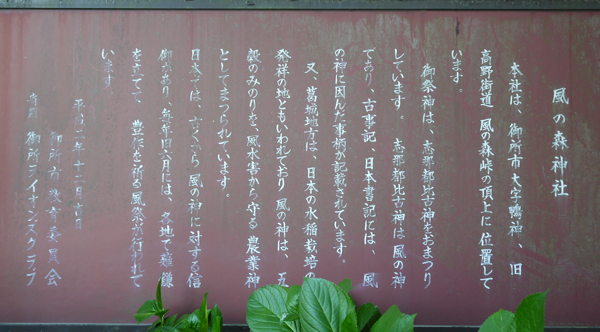 風の森神社
本社は、御所市大字鴨神、旧
高野街道 風の森峠の頂上に位置して
います。
御祭神は、志那都比古神をおまつり
しています。 志那都比古神は風の神
であり、古事記、日本書記には、風
の神に因んだ事柄が記載されています。
又、葛城地方は、日本の水稲栽培の
発祥の地ともいわれており 風の神は、五
穀のみのりを、風水害から守る 農業神
としてまつられています。
日本では、古くから 風の神に対する信
仰があり、毎年旧六月には、各地で薙鎌
を立てて、 豊作を祈る風祭が行われて
います。
平成二年十二月
御所市教育委員会
御所ライオンズクラブ